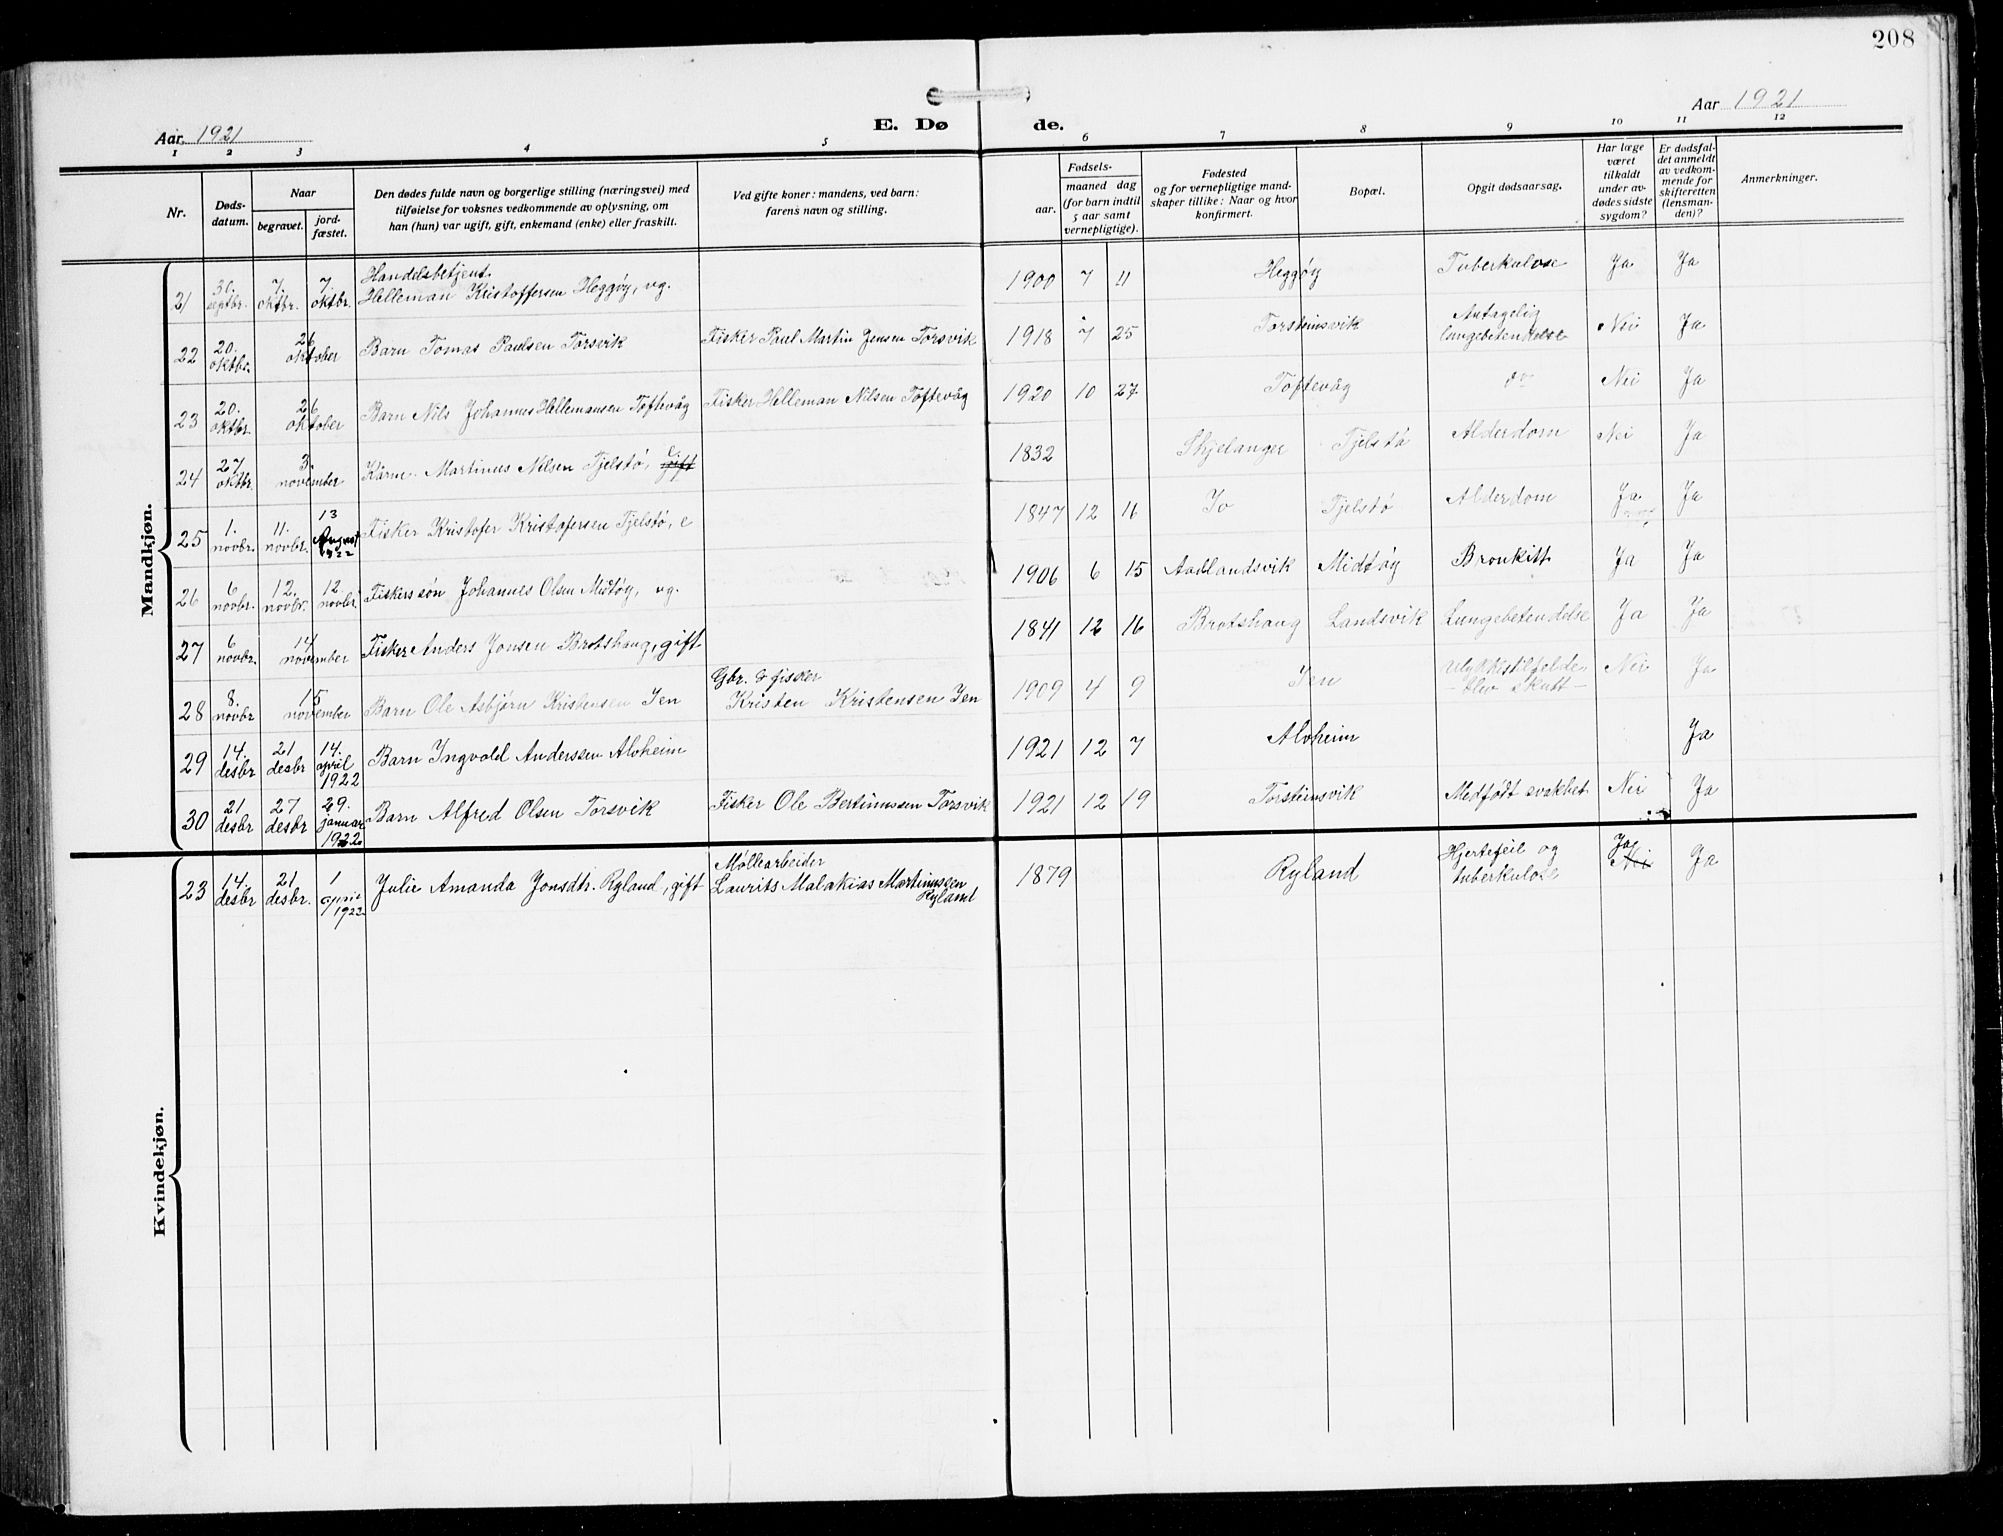 208
Aar 1921 E. Dø de. Aar 1921
1 2 3 4 5 6 7 8 9 10 11 12
Nr.
Døds-
datum.
Naar
begravet.
jord-
fæstet.
Den dødes fulde navn og borgerlige stilling (næringsvei) med
tilføielse for voksnes vedkommende av oplysning, om
han (hun) var ugift, gift, enkemand (enke) eller fraskilt.
Ved gifte koner: mandens, ved barn:
farens navn og stilling.
Fødsels-
aar.
maaned dag
(for barn indtil
5 aar samt
vernepligtige).
Fødested
og for vernepligtige mand-
skaper tillike: Naar og hvor
konfirmert.
Bopæl.
Opgit dødsaarsag.
Har læge
været
tilkaldt
under av-
dødes sidste
sygdom?
Er dødsfal-
det anmeldt
av vedkom-
mende for
skifteretten
(lensman-
den)?
Anmerkninger.
Mandkjøn.
21 30. septbr. 7. oktbr. 7. oktbr. Handelsbetjent
Helleman Kristoffersen Heggøy, ug. 1900 7 11 Heggøy Tuberkulose Ja Ja
22 20. oktbr. 26 oktober Barn Tomas Paulsen Torsvik Fisker Paul Martin Jensen Torsvik 1918 7 25 Torsteinsvik Antagelig
lungebetendelse Nei Ja
23 20. oktbr. 26 oktober Barn Nils Johannes Hellemansen Toftevåg Fisker Helleman Nilsen Toftevåg 1920 10 27 Toftevåg do Nei Ja
24 27 oktbr. 3. november Kårm. Martinus Nilsen Tjelstø, gift 1832 Skjelanger Tjelstø Alderdom Nei Ja
25 1. novbr. 11. novbr. 13 August 1922 Fisker Kristofer Kristofersen Tjelstø, e 1847 12 11 Io Tjelstø Alderdom Ja Ja
26 6 novbr. 12. novbr. 12. novbr. Fiskerssøn Johannes Olsen Midtøy, ug. 1906 6 15 Aadlandsvik Midtøy Bronkitt Ja Ja
27 6 novbr. 14 november Fisker Anders Jonsen Brotshaug, gift 1841 12 16 Brotshaug Landsvik Lungebetendelse Ja Ja
28 8. novbr 15 november Barn Ole Asbjørn Kristensen Jen Gbr. & fisker
Kristen Kristensen Jen 1909 4 9 Jen Ulykkestilfelde
- blev skutt - Nei Ja
29 14. desbr 21 desbr 14. april 1922 Barn Ingvold Anderssen Alvheim 1921 12 7 Alvheim Ja
30 21 desbr 27 desbr 29. januar 1922 Barn Alfred Olsen Torsvik Fisker Ole Bertinussen Torsvik 1921 12 19 Torsteinsvik Medfødt svakhet Nei Ja
Kvindekjøn.
23 14. desbr 21 desbr. 1 april 1922 Julie Amanda Jonsdtr. Ryland, gift Møllearbeider
Laurits Malakias Martinussen
Ryland 1879 Ryland Hjertefeil og
tuberkulose Ja Nei Ja